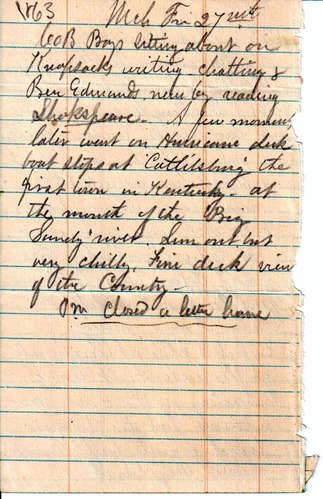 1863 Mch Fri 27
Co B Boys sitting about on
Knapsacks writing, chatting &
Ben Edmands near by reading
Shakspeare. A few moments
later went on Hurricane deck
boat stops at "Catlitsburg" the
first town in Kentucky - at
the mouth of the "Big
Sandy" river. Sun out but
very chilly. Fine deck view
of the Country -
Pm closed a letter home